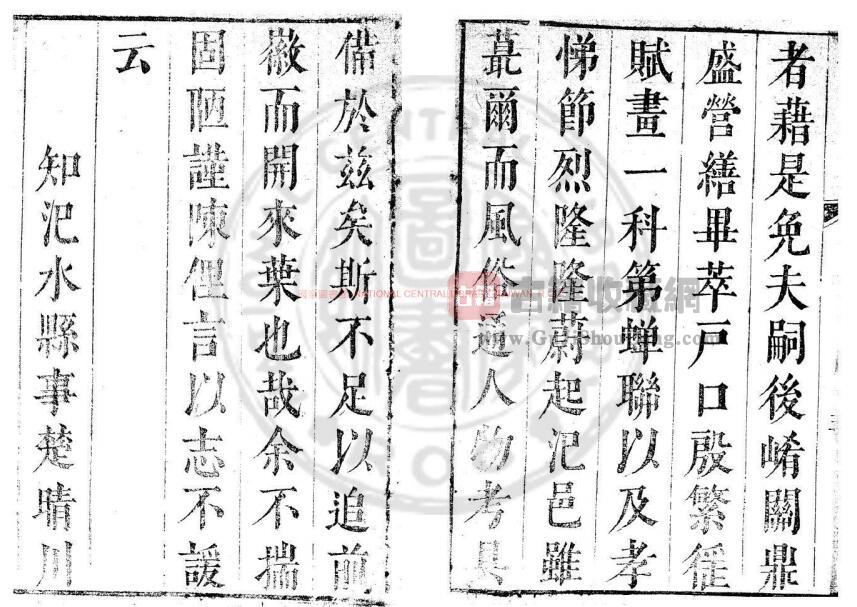 者藉是免夫嗣後崤關鼎
盛營繕畢萃戶口殷繁徭
賦畫一科第蟬聯以及孝
悌節烈隆隆蔚起汜邑雖
蕞爾而風俗人物考具
備於茲矣斯不足以追前
徽而開來葉也哉余不揣
固陋謹陳俚言以志不諼
云
知汜水縣事楚晴川
NATIONAL CENTRAL
古籍